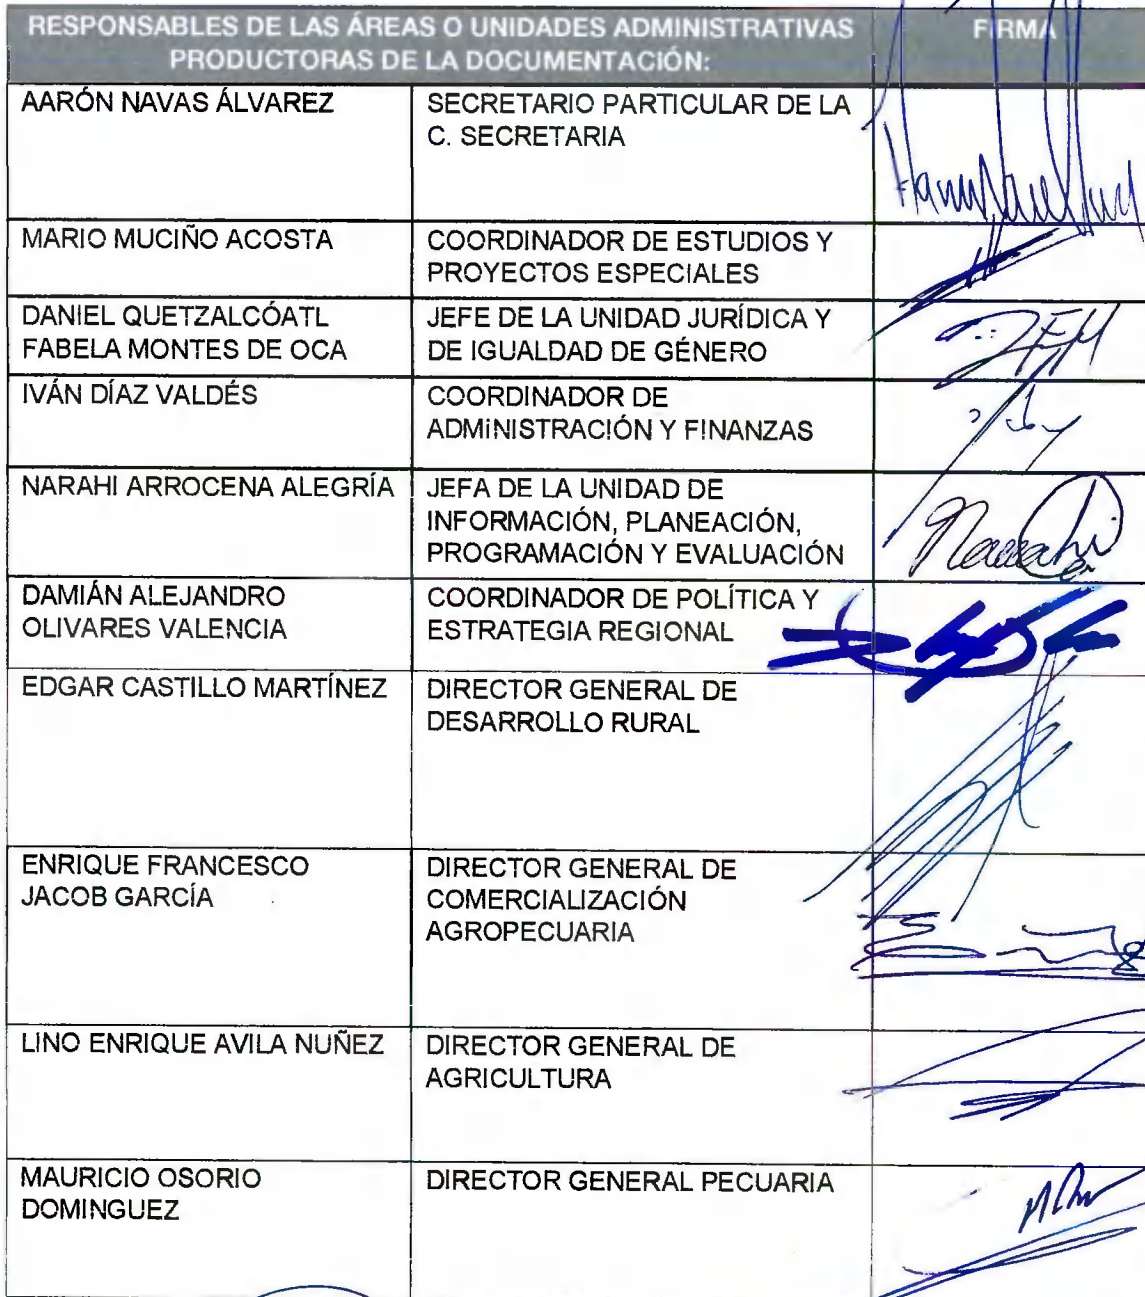 RESPONSABLES DE LAS ÁREAS O UNIDADES ADMINISTRATIVAS
PRODUCTORAS DE LA DOCUMENTACIÓN:
FIRMA
AARÓN NAVAS ÁLVAREZ
SECRETARIO PARTICULAR DE LA
C. SECRETARIA
MARIO MUCIÑO ACOSTA
COORDINADOR DE ESTUDIOS Y
PROYECTOS ESPECIALES
DANIEL QUETZALCÓATL
FABELA MONTES DE OCA
JEFE DE LA UNIDAD JURÍDICA Y
DE IGUALDAD DE GÉNERO
IVÁN DÍAZ VALDÉS
COORDINADOR DE
ADMINISTRACIÓN Y FINANZAS
NARAHI ARROCENA ALEGRÍA
JEFA DE LA UNIDAD DE
INFORMACIÓN, PLANEACIÓN,
PROGRAMACIÓN Y EVALUACIÓN
Narahi
DAMIÁN ALEJANDRO
OLIVARES VALENCIA
COORDINADOR DE POLÍTICA Y
ESTRATEGIA REGIONAL
EDGAR CASTILLO MARTÍNEZ
DIRECTOR GENERAL DE
DESARROLLO RURAL
ENRIQUE FRANCESCO
JACOB GARCÍA
DIRECTOR GENERAL DE
COMERCIALIZACIÓN
AGROPECUARIA
LINO ENRIQUE AVILA NUÑEZ
DIRECTOR GENERAL DE
AGRICULTURA
MAURICIO OSORIO
DOMINGUEZ
DIRECTOR GENERAL PECUARIA